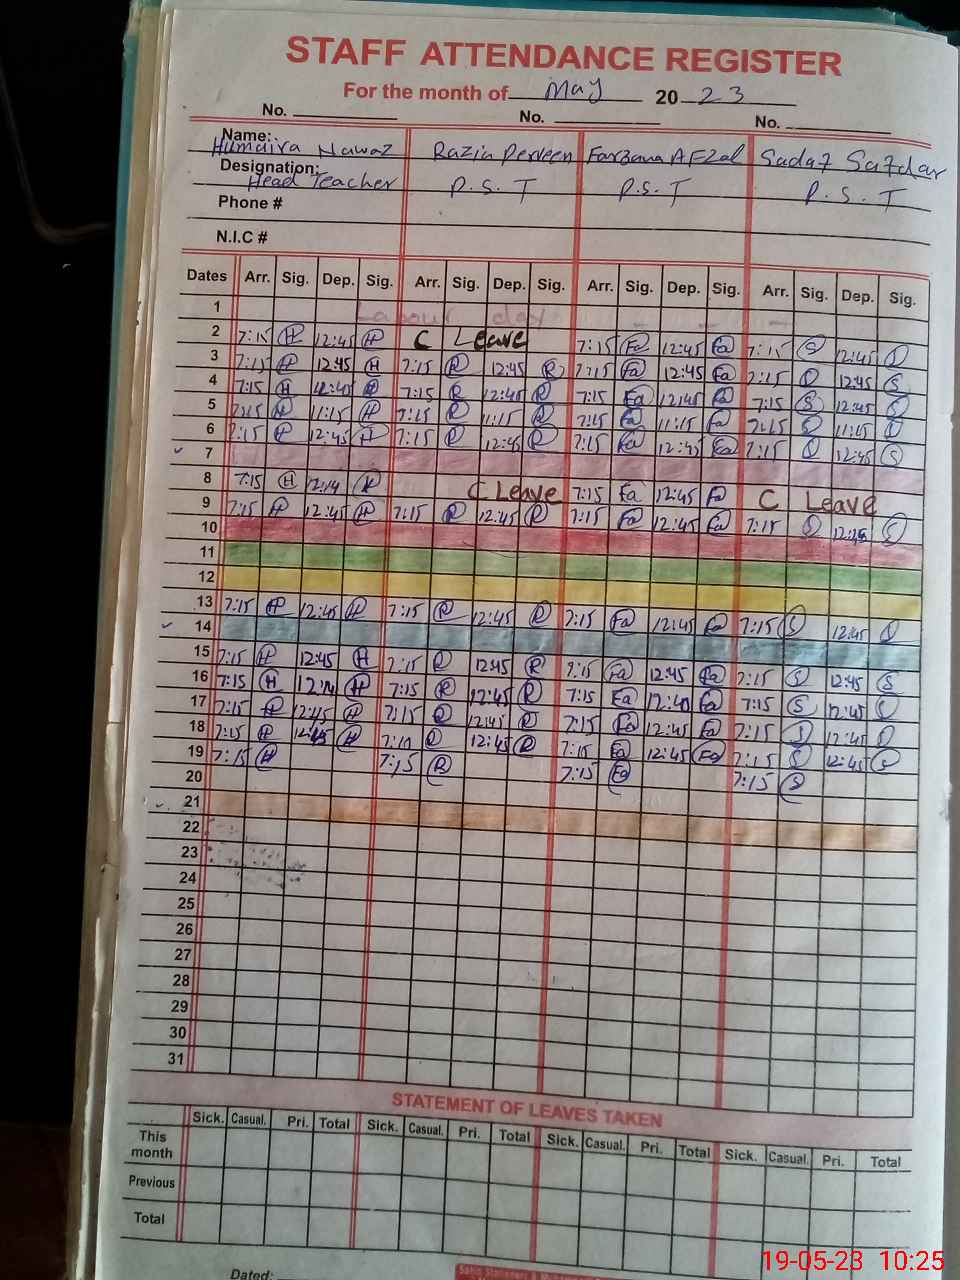 STAFF ATTENDANCE REGISTER
For the month of May 2023
No. No. No.
Name: Humaira Nawaz Razia Perveen Farzana Afzal Sadaf Safdar
Designation: Head Teacher P.S.T P.S.T P.S.T
Phone #
N.I.C #
Dates Arr. Sig. Dep. Sig. Arr. Sig. Dep. Sig. Arr. Sig. Dep. Sig. Arr. Sig. Dep. Sig.
1 Labour day
2 7:15 H 12:45 H C Leave 7:15 Fa 12:45 Fa 7:15 S 12:45 S
3 7:15 H 12:45 H 7:15 R 12:45 R 7:15 Fa 12:45 Fa 7:15 S 12:45 S
4 7:15 H 12:45 H 7:15 R 12:45 R 7:15 Fa 12:45 Fa 7:15 S 12:45 S
5 7:15 H 11:15 H 7:15 R 11:15 R 7:15 Fa 11:15 Fa 7:15 S 11:15 S
6 7:15 H 12:45 H 7:15 R 12:45 R 7:15 Fa 12:45 Fa 7:15 S 12:45 S
7
8 7:15 H H C Leave 7:15 Fa 12:45 Fa C Leave
9 7:15 H 12:45 H 7:15 R 12:45 R 7:15 Fa 12:45 Fa 7:15 S 12:45 S
10
11
12
13 7:15 H 12:45 H 7:15 R 12:45 R 7:15 Fa 12:45 Fa 7:15 S 12:45 S
14
15 7:15 H 12:45 H 7:15 R 12:45 R 7:15 Fa 12:45 Fa 7:15 S 12:45 S
16 7:15 H H 7:15 R 12:45 R 7:15 Fa 12:40 Fa 7:15 S 12:45 S
17 7:15 H 12:45 H 7:15 R 12:45 R 7:15 Fa 12:45 Fa 7:15 S 12:45 S
18 7:15 H 12:45 H 7:10 R 12:45 R 7:15 Fa 12:45 Fa 7:15 S 12:45 S
19 7:15 H 7:15 R 7:15 Fa 7:15 S
20
21
22
23
24
25
26
27
28
29
30
31
STATEMENT OF LEAVES TAKEN
Sick. Casual. Pri. Total Sick. Casual. Pri. Total Sick. Casual. Pri. Total Sick. Casual. Pri. Total
This month
Previous
Total
Dated:
19-05-23 10:25